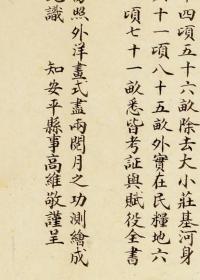 十四頃五十六畝除去大小莊基河身
十一頃八十五畝外實在民糧地六
頃七十一畝悉皆考証與賦役全書
照外洋畫式盡兩閱月之功測繪成
識　知安平縣事高維敬謹呈